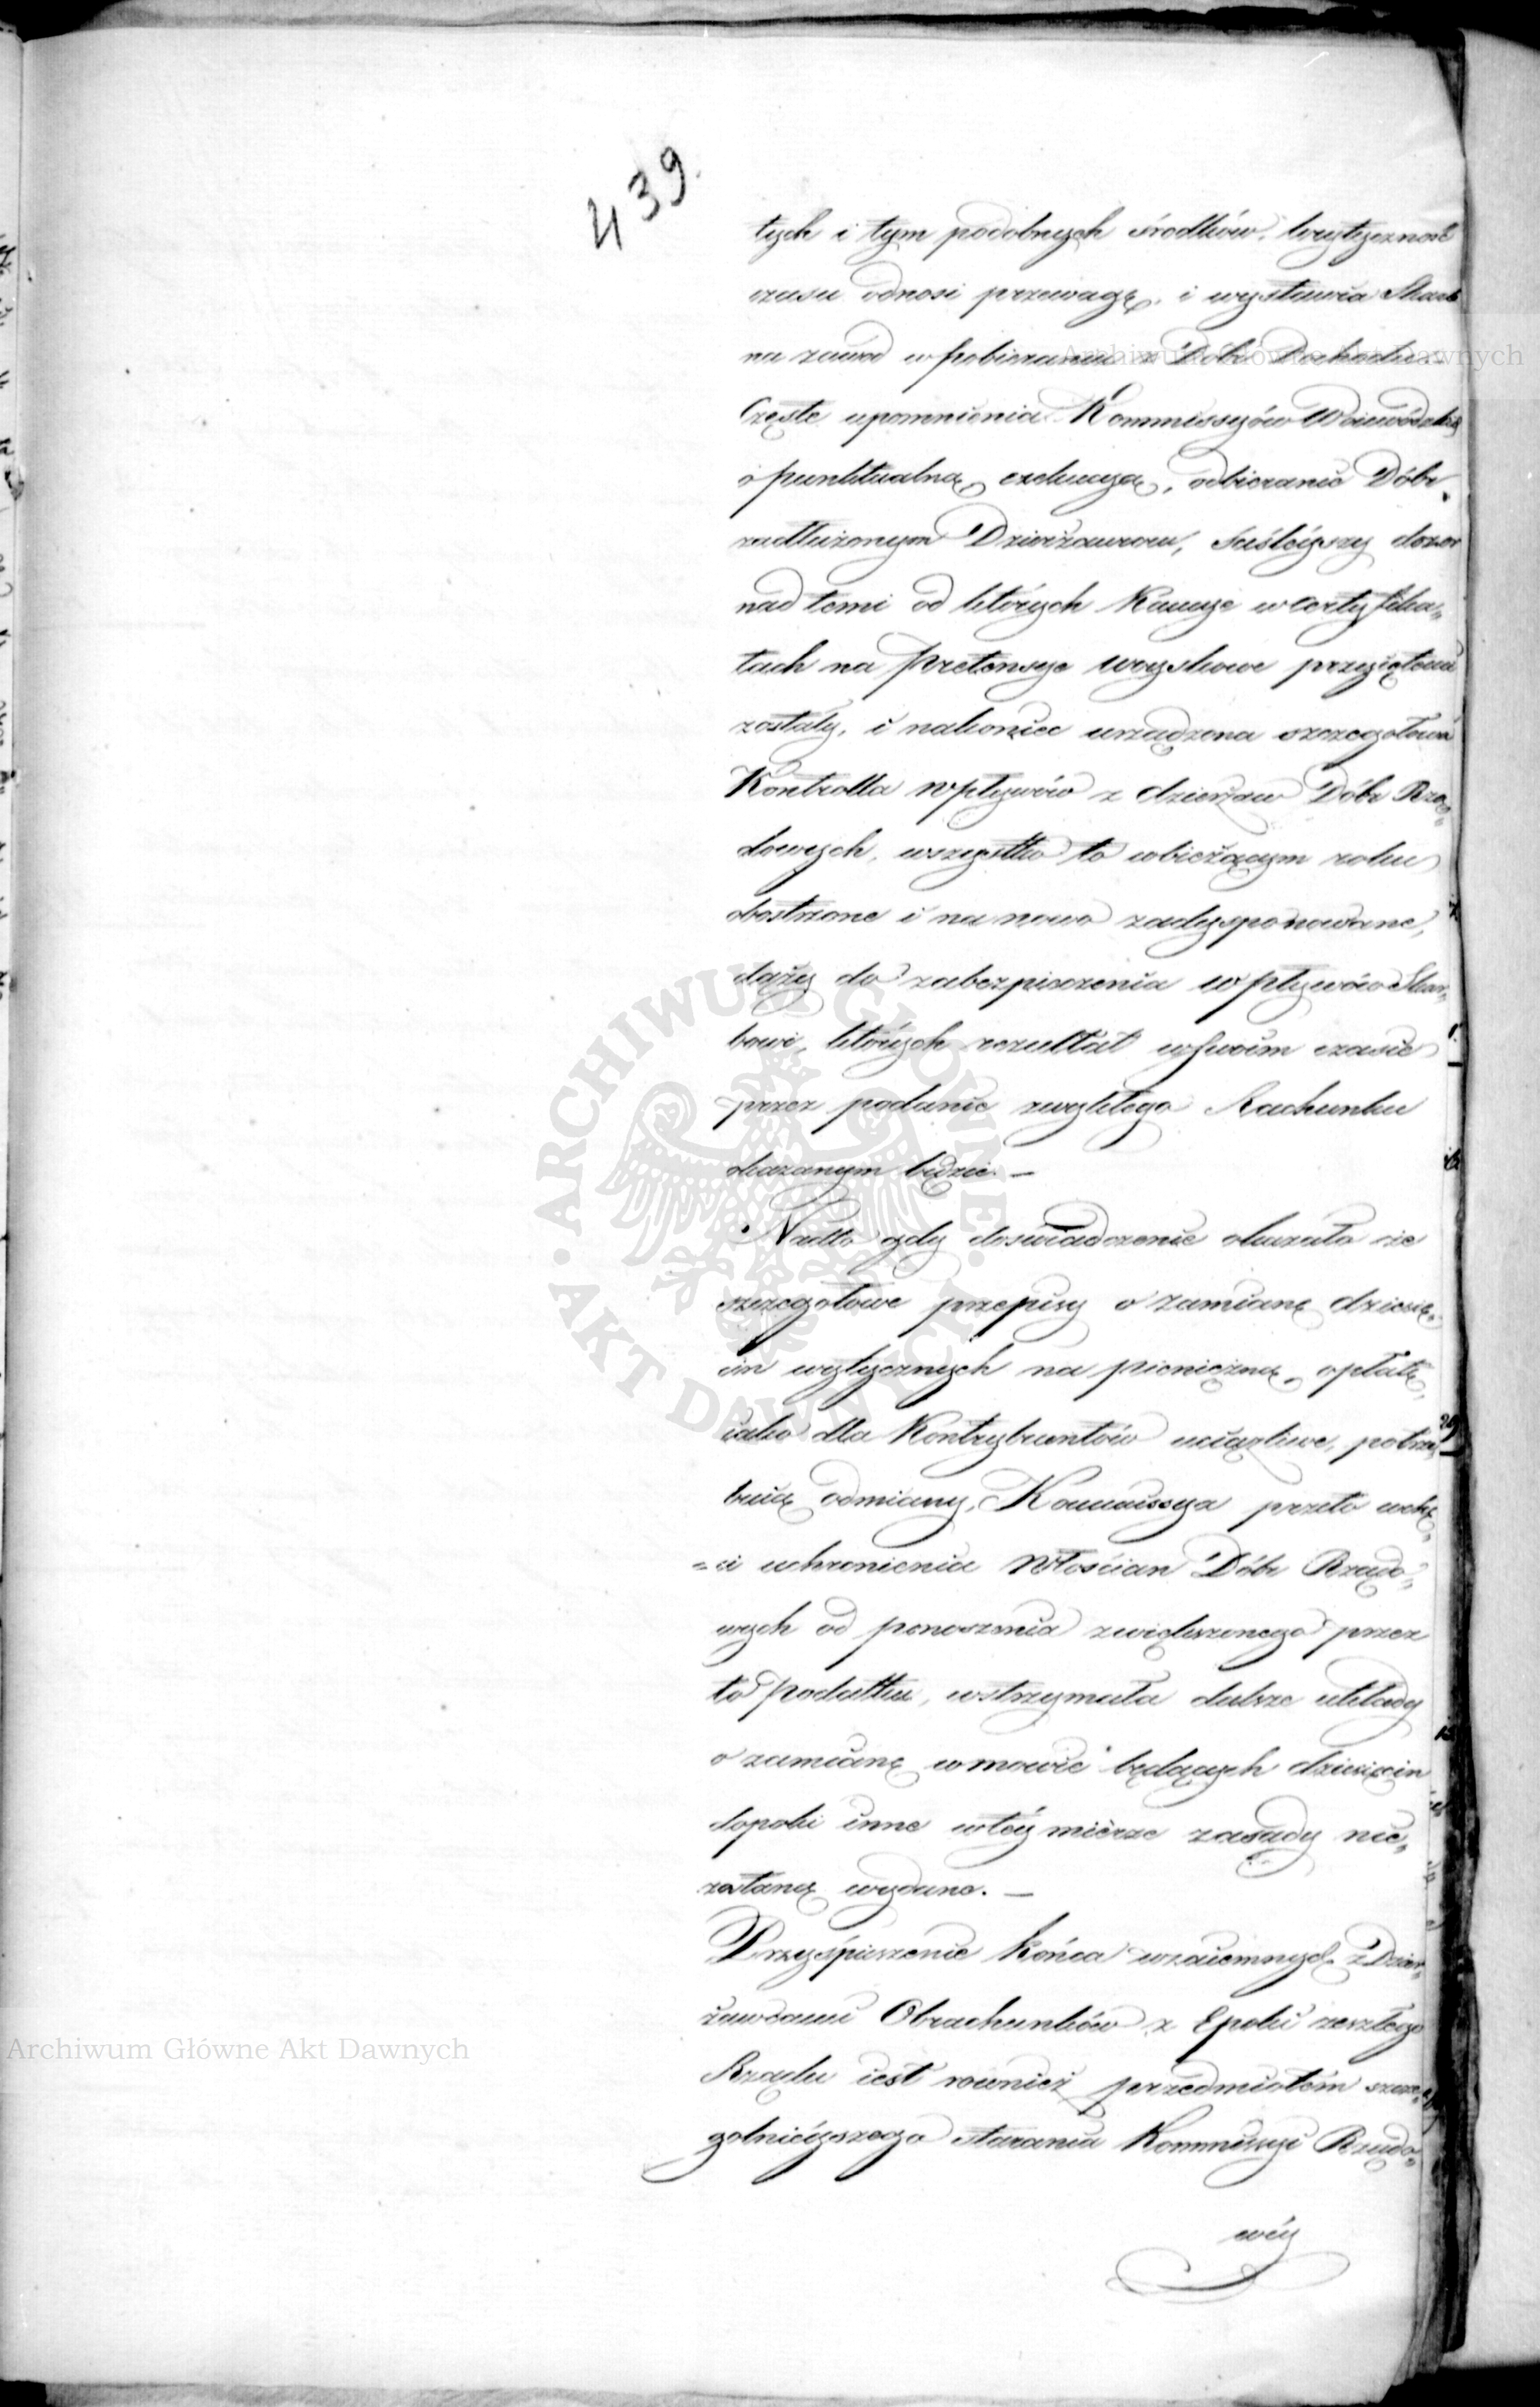 439.
tych i tym podobnych środków, krytyczność
czasu odnosi przewagę, i wystawia Skarb
na zawód w pobieraniu z Dóbr Dochodu.
Częste upomnienia Kommissyów Woiewódzkich
o punktualną exekucyą, odbieranie Dóbr
zadłużonym Dzierżawcom, ściśleyszy dozor
nad temi od których Kaucye w certyfika„
tach na pretensye woyskowe przyiętemi
zostały, i nakoniec urządzona szczegołowa
Kontrolla wpływów z dzierżaw Dóbr Rzą„
dowych, wszystko to wbieżącym roku
obostrzone i na nowo zadysponowane,
dąży do zabezpieczenia wpływów Skar„
bowi, których rezultat wswoim czasie
przez podanie zwykłego Rachunku
okazanym będzie. —
Nadto gdy doświadczenie okazało że
szczegołowe przepisy o zamianę dziesię„
cin wytycznych na pieniężną opłatę,
iako dla Kontrybuentów uciążliwe, potrze„
buią odmiany, Kommissya przeto wchę„
=ci uchronienia Włościan Dóbr Rządo„
wych od ponoszenia zwiększonego przez
to podatku, wstrzymała dalsze układy
o zamianę wmowie będących dziesięcin
dopoki inne wtéy mierze zasady nie„
zostaną wydane. —
Przyśpieszenie końca wzaiemnych z Dzier„
żawcami Obrachunków z Epoki zeszłego
Rządu iest rownież przedmiotem szcze„
golnieyszego starania Kommissyi Rządo„
wéy
Archiwum Główne Akt Dawnych
Archiwum Główne Akt Dawnych
ARCHIWUM GŁÓWNE AKT DAWNYCH